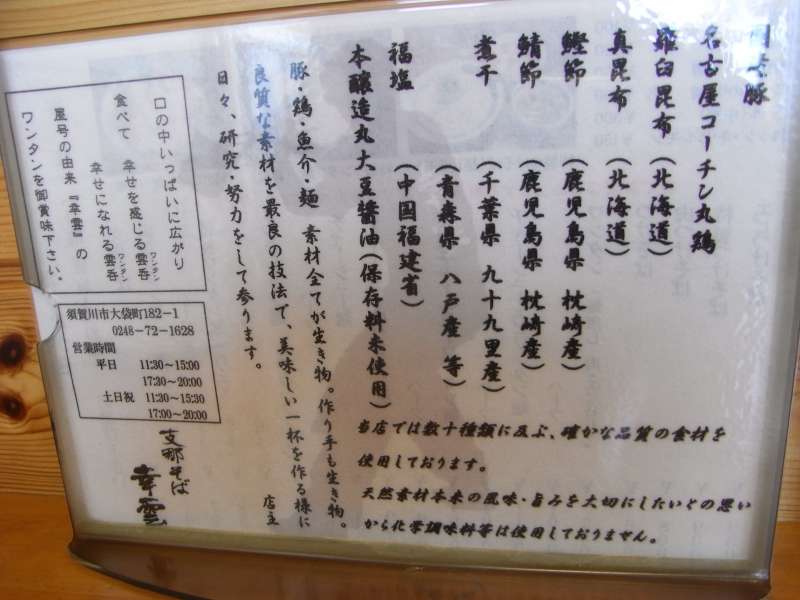 名古屋コーチン丸鶏
羅臼昆布(北海道)
真昆布(北海道)
鰹節(鹿児島県 枕崎産)
鯖節(鹿児島県 枕崎産)
煮干(千葉県 九十九里産)
(青森県 八戸産 等)
福塩(中国福建省)
本醸造丸大豆醤油(保存料未使用)
当店では数十種類に及ぶ、確かな品質の食材を
使用しております。
天然素材本来の風味・旨みを大切にしたいとの思い
から化学調味料等は使用しておりません。
豚・鶏・魚介・麺 素材全てが生き物。作り手も生き物。
良質な素材を最良の技法で、美味しい一杯を作る様に
日々、研究・努力をして参ります。
店主
口の中いっぱいに広がり
食べて 幸せを感じる雲呑
ワンタン
幸せになれる雲呑
ワンタン
屋号の由来『幸雲』の
ワンタンを御賞味下さい。
須賀川市大袋町182-1
0248-72-1628
営業時間
平日 11:30〜15:00
17:30〜20:00
土日祝 11:30〜15:30
17:00〜20:00
支那そば
幸雲